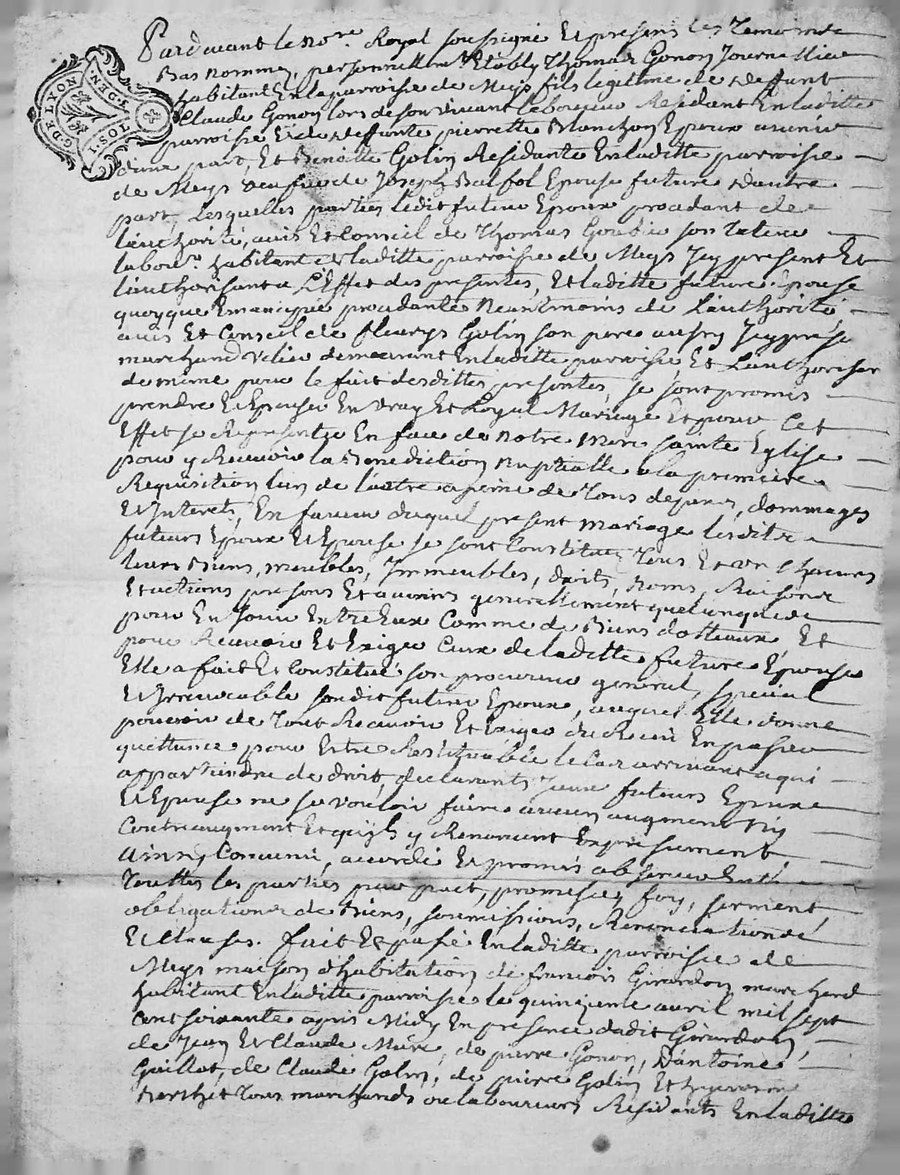 G. DE LYON
IN. DEN.
1 SOL
Pardavant le no.re Royal soussigné Et presens les Temoins de
Bas nommez personnellem.t Etably Thomas Gonon Journellier
habitant En la parroisse de Meys fils legitime de deffunt
Claude Gonon lors de son vivant laboureur Residant En laditte
parroisse Et de deffunte pierrette Blanchon Epoux avenir
d'une part, Et Benoitte Golin Residante En laditte parroisse
de Meys veufve de Joseph Epouse future d'autre
part, Lesquelles parties ledit futur Epoux procedant de
l'authorité, avis Et Conseil de Thomas son
labour.r habitant et laditte parroisse de Meys Jcy present Et
l'authorisant a L'Effet des presentes, Et laditte future Epouse
quoyque Emancipée procedante Neantmoins de L'authorité
avis Et Conseil de fleurys Golin son pere aussy Jcy present
marchand demeurant En laditte parroisse, Et L'authorisant
de meme pour le fait desdittes presentes, se sont promis
prendre Et Epouser En vray Et Loyal Mariage Et pour Cet
Effet se Representer En face de Notre Mere sainte Eglise
pour y Recevoir la Benediction Nuptialle a la premiere
Requisition l'un de l'autre a peine de Tous depens, dommages
Et Interets, En faveur duquel present mariage lesdits
futurs Epoux Et Epouse se sont Constitués Tous Et un Chacuns
leurs Biens, meubles, Immeubles, droits, Noms, Raisons
Et actions presens Et avenirs generallement quelconques
pour En Jouir Entre Eux Comme de Biens dotteaux, Et
pour Recevoir Et Exiger Ceux de laditte future Epouse
Elle a fait Et Constitué son procureur general, special
Et Irrevocable sondit futur Epoux, auquel Elle donne
pouvoir de Tout Recevoir Et Exiger du Receu En passer
quittance pour Estre Restituable le Cas arrivant a qui
appartiendra de droit, declarants Iceux futurs Epoux
Et Epouse ne se vouloir faire aucun augment Ny
Contreaugment Et qu'ils y Renoncent Expressement,
Ainsy Convenu, accordé Et promis observer Entre
Touttes les parties par pact, promesses, foy, serment,
obligations de Biens, soumissions, Renonciations
Et Clauses. fait Et passé En laditte parroisse de
Meys maison d'habitation de francois Girardon marchand
habitant En laditte parroisse le quinzieme avril mil sept
cent soixante apres Midy En presence dudit Girardon,
de Jean Et Claude Mure, de pierre Gonon, D'antoine
Guillot, de Claude Golin, de pierre Golin Et
Berthet Tous marchands ou laboureurs Residants En laditte